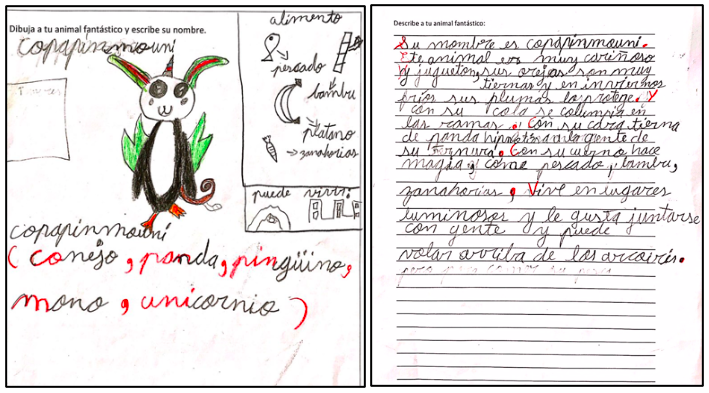 Dibuja a tu animal fantástico y escribe su nombre.
copapinmouni
alimento
pescado
bambu
platano
zanahorias
puede vivir:
copapinmouni
(conejo, panda, pingüino,
mono, unicornio)
Describe a tu animal fantástico:
Su nombre es copapinmouni.
Este animal es muy cariñoso
y jugueton, sus orejas son muy
tiernas y en inviernos
fríos sus plumas lo protege. Y
con su cola se columpia en
las ramas. Con su cara tierna
de panda hipnotizan a la gente de
su ternura. Con su cuerno hace
magia y come pescado, bambu,
zanahorias, Vive en lugares
luminosos y le gusta juntarse
con gente y puede
volar arriba de los arcoiris.